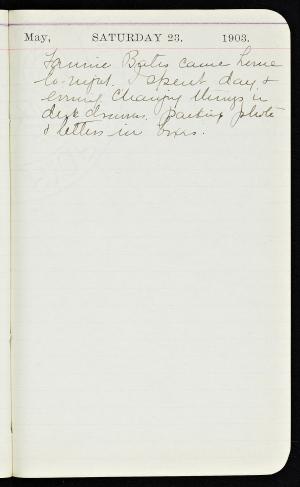 May, SATURDAY 23. 1903.
Fannie Bates came home
to-night. I spent day &
evening changing things in
desk drawers. packing photo
& letters in boxes.